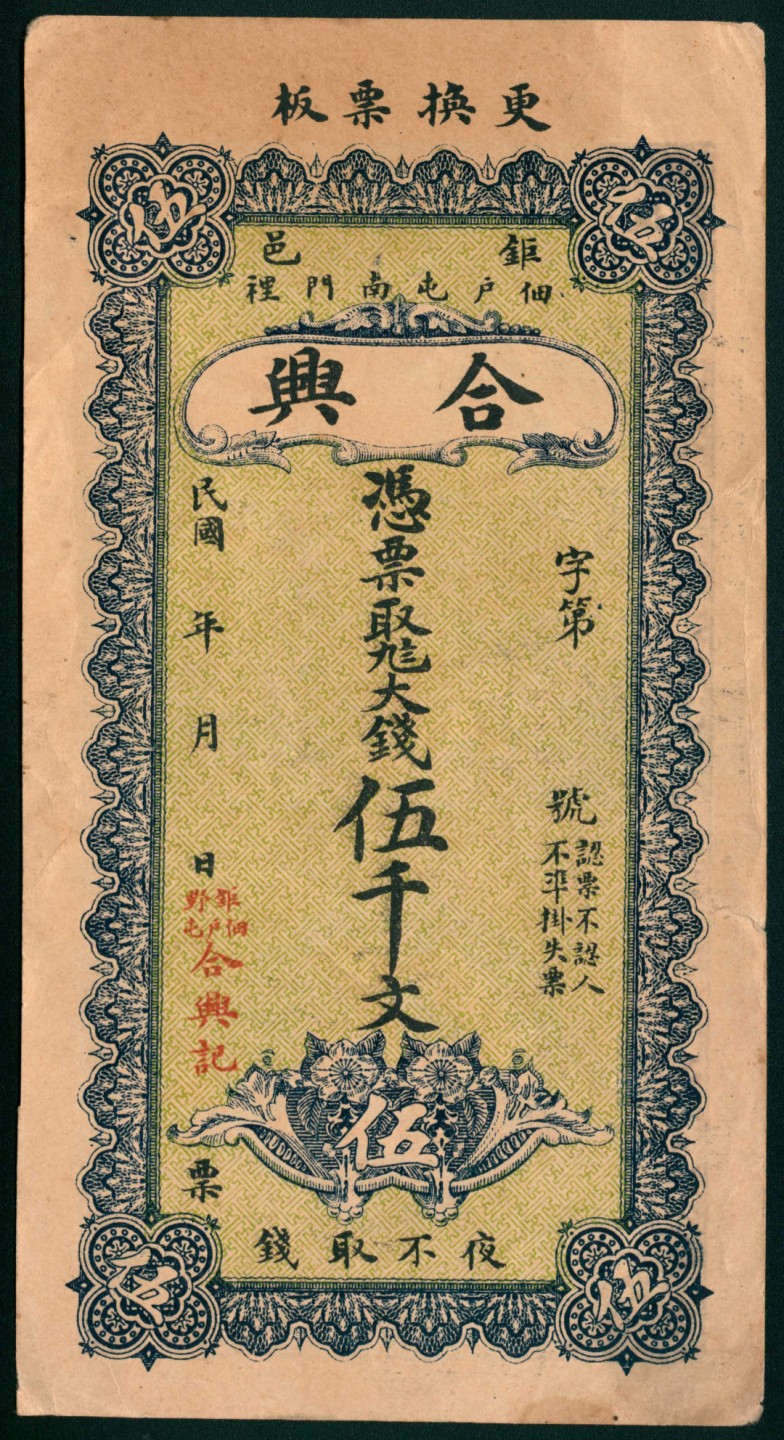 更換票板
伍
伍
鉅邑
佃戶屯南門裡
合興
字第 號
認票不認人
不準掛失票
憑票取大錢伍千文
民國 年 月 日
鉅野
佃戶屯
合興記
票
伍
夜不取錢
伍
伍